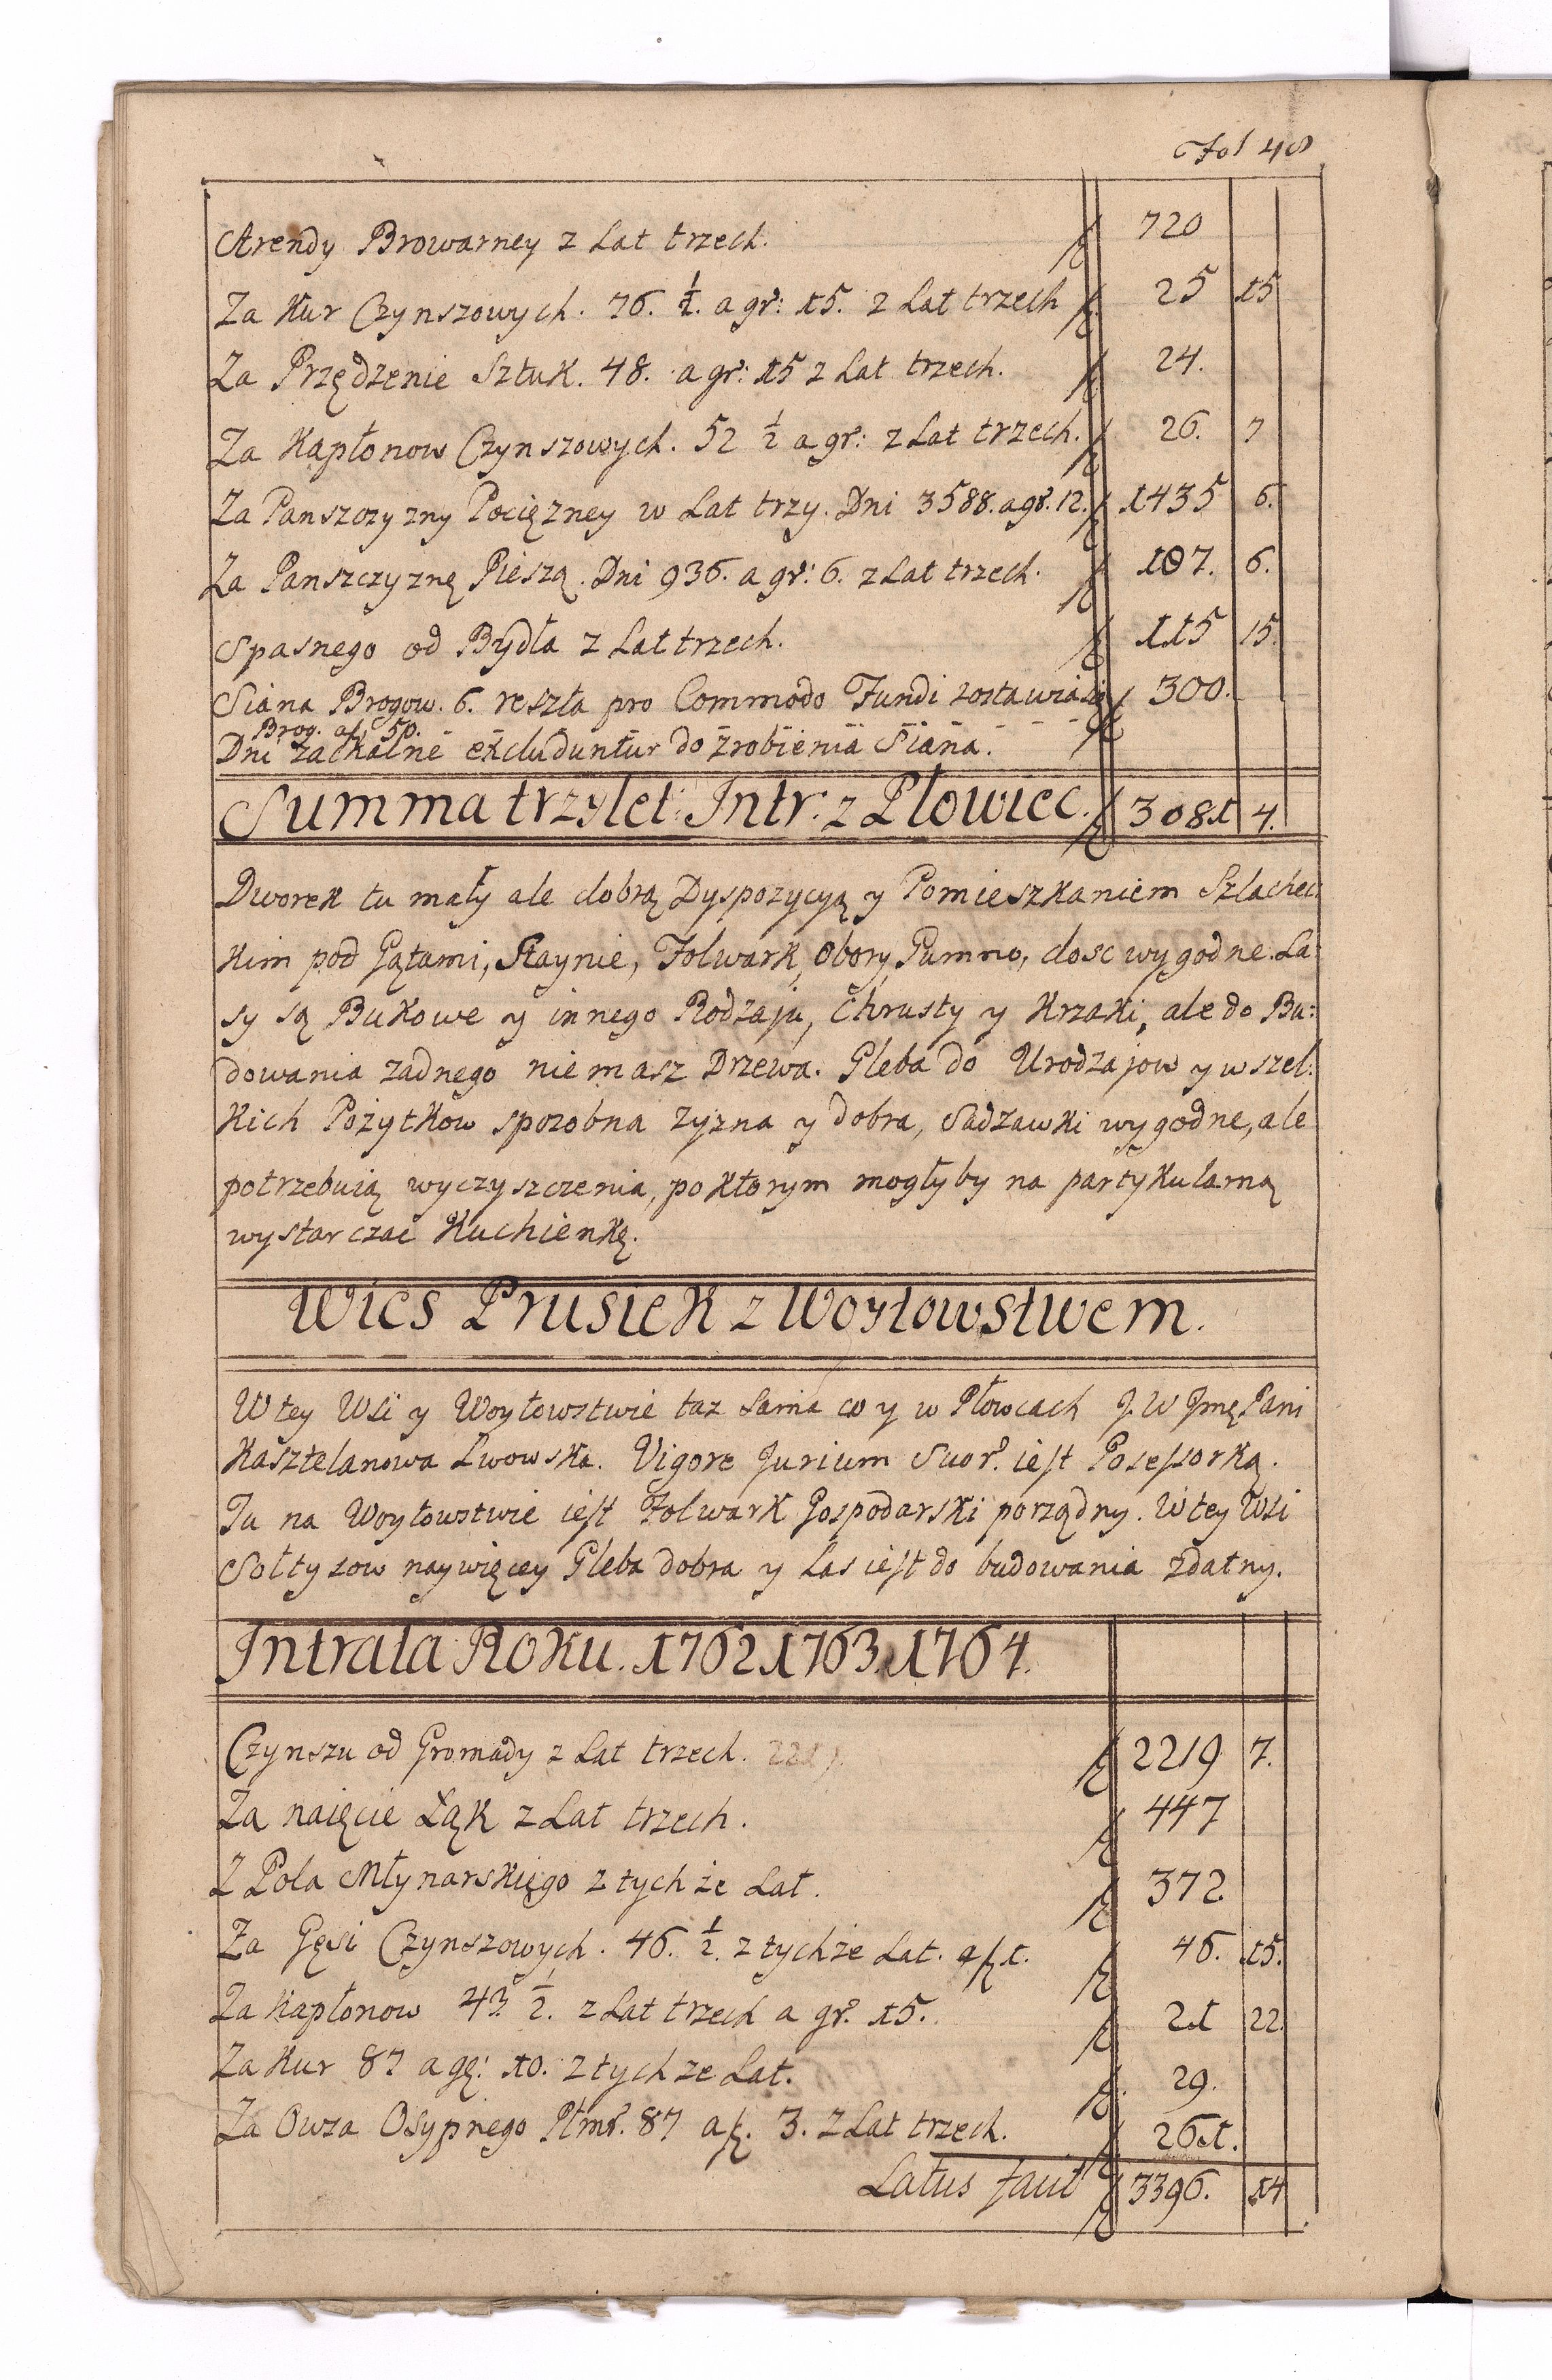 Fol 48
Arendy Browarney z Lat trzech. 720
Za Kur Czynszowych. 76. ½. a gr: 15. z Lat trzech 25 15
Za Przędzenie Sztuk. 48. a gr: 15 z Lat trzech. 24.
Za Kapłonow Czynszowych. 52 ½ a gr: z Lat trzech. 26. 7
Za Panszczyzny Pociężney w Lat trzy. Dni 3588. a gr. 12. 1435 6.
Za Panszczyznę Pieszą. Dni 936. a gr: 6. z Lat trzech. 187. 6.
Spasnego od Bydła z Lat trzech. 115 15.
Siana Brogow. 6. reszta pro Commodo Fundi zostawia się 300.
Brog. a 50.
Dni zackalne excluduntur do zrobienia Siana.
Summa trzylet: Intr: z Płowiec. 3081 4.
Dworek tu mały ale dobrą Dyspozycyą y Pomieszkaniem Szlachec:
kim pod Gątami, Staynie, Folwark, Obory, Gumno, dosc wygodne. La:
sy są Bukowe y innego Rodzaju, Chrusty y Krzaki, ale do Bu:
dowania zadnego niemasz Drzewa. Gleba do Urodzajow y wszel:
kich Pożytkow sposobna zyzna y dobra, Sadzawki wygodne, ale
potrzebuią wyczyszczenia, po ktorym mogłyby na partykularną
wystarczac Kuchienkę.
Wies Prusiek z Woytowstwem.
W tey Wsi y Woytowstwie taz sama co y w Płowcach J.W Jmę Pani
Kasztelanowa Lwowska. Vigore Jurium Suor. iest Posessorką.
Tu na Woytowstwie iest Folwark Gospodarski porządny. W tey Wsi
Sołtysow naywięcey Gleba dobra y Las iest do budowania zdatny.
Intrata Roku. 1762 1763. 1764.
Czynszu od Gromady z Lat trzech. 2219 7.
Za naięcie Łąk z Lat trzech. 447
Z Pola Młynarskiego z tychże Lat. 372
Za Gęsi Czynszowych. 46. ½. z tychże Lat. a ƶ 1. 46. 15.
Za Kapłonow 43 ½. z Lat trzech a gr. 15. 21 22.
Za Kur 87 a gę: 10. z tychze Lat. 29.
Za Owsa Osypnego Płmr. 87 a ƶ. 3. z Lat trzech. 261.
Latus facit 3396. 14